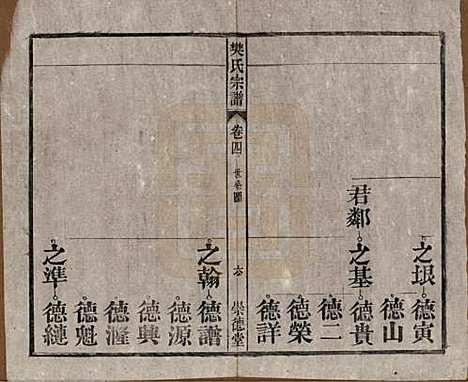 之垠 德寅
德山
君鄰 之基 德貴
德二
德榮
德詳
樊氏宗譜 卷四 世系圖 六 崇德堂
之翰 德譜
德源
德興
德隆
德魁
之準 德縺